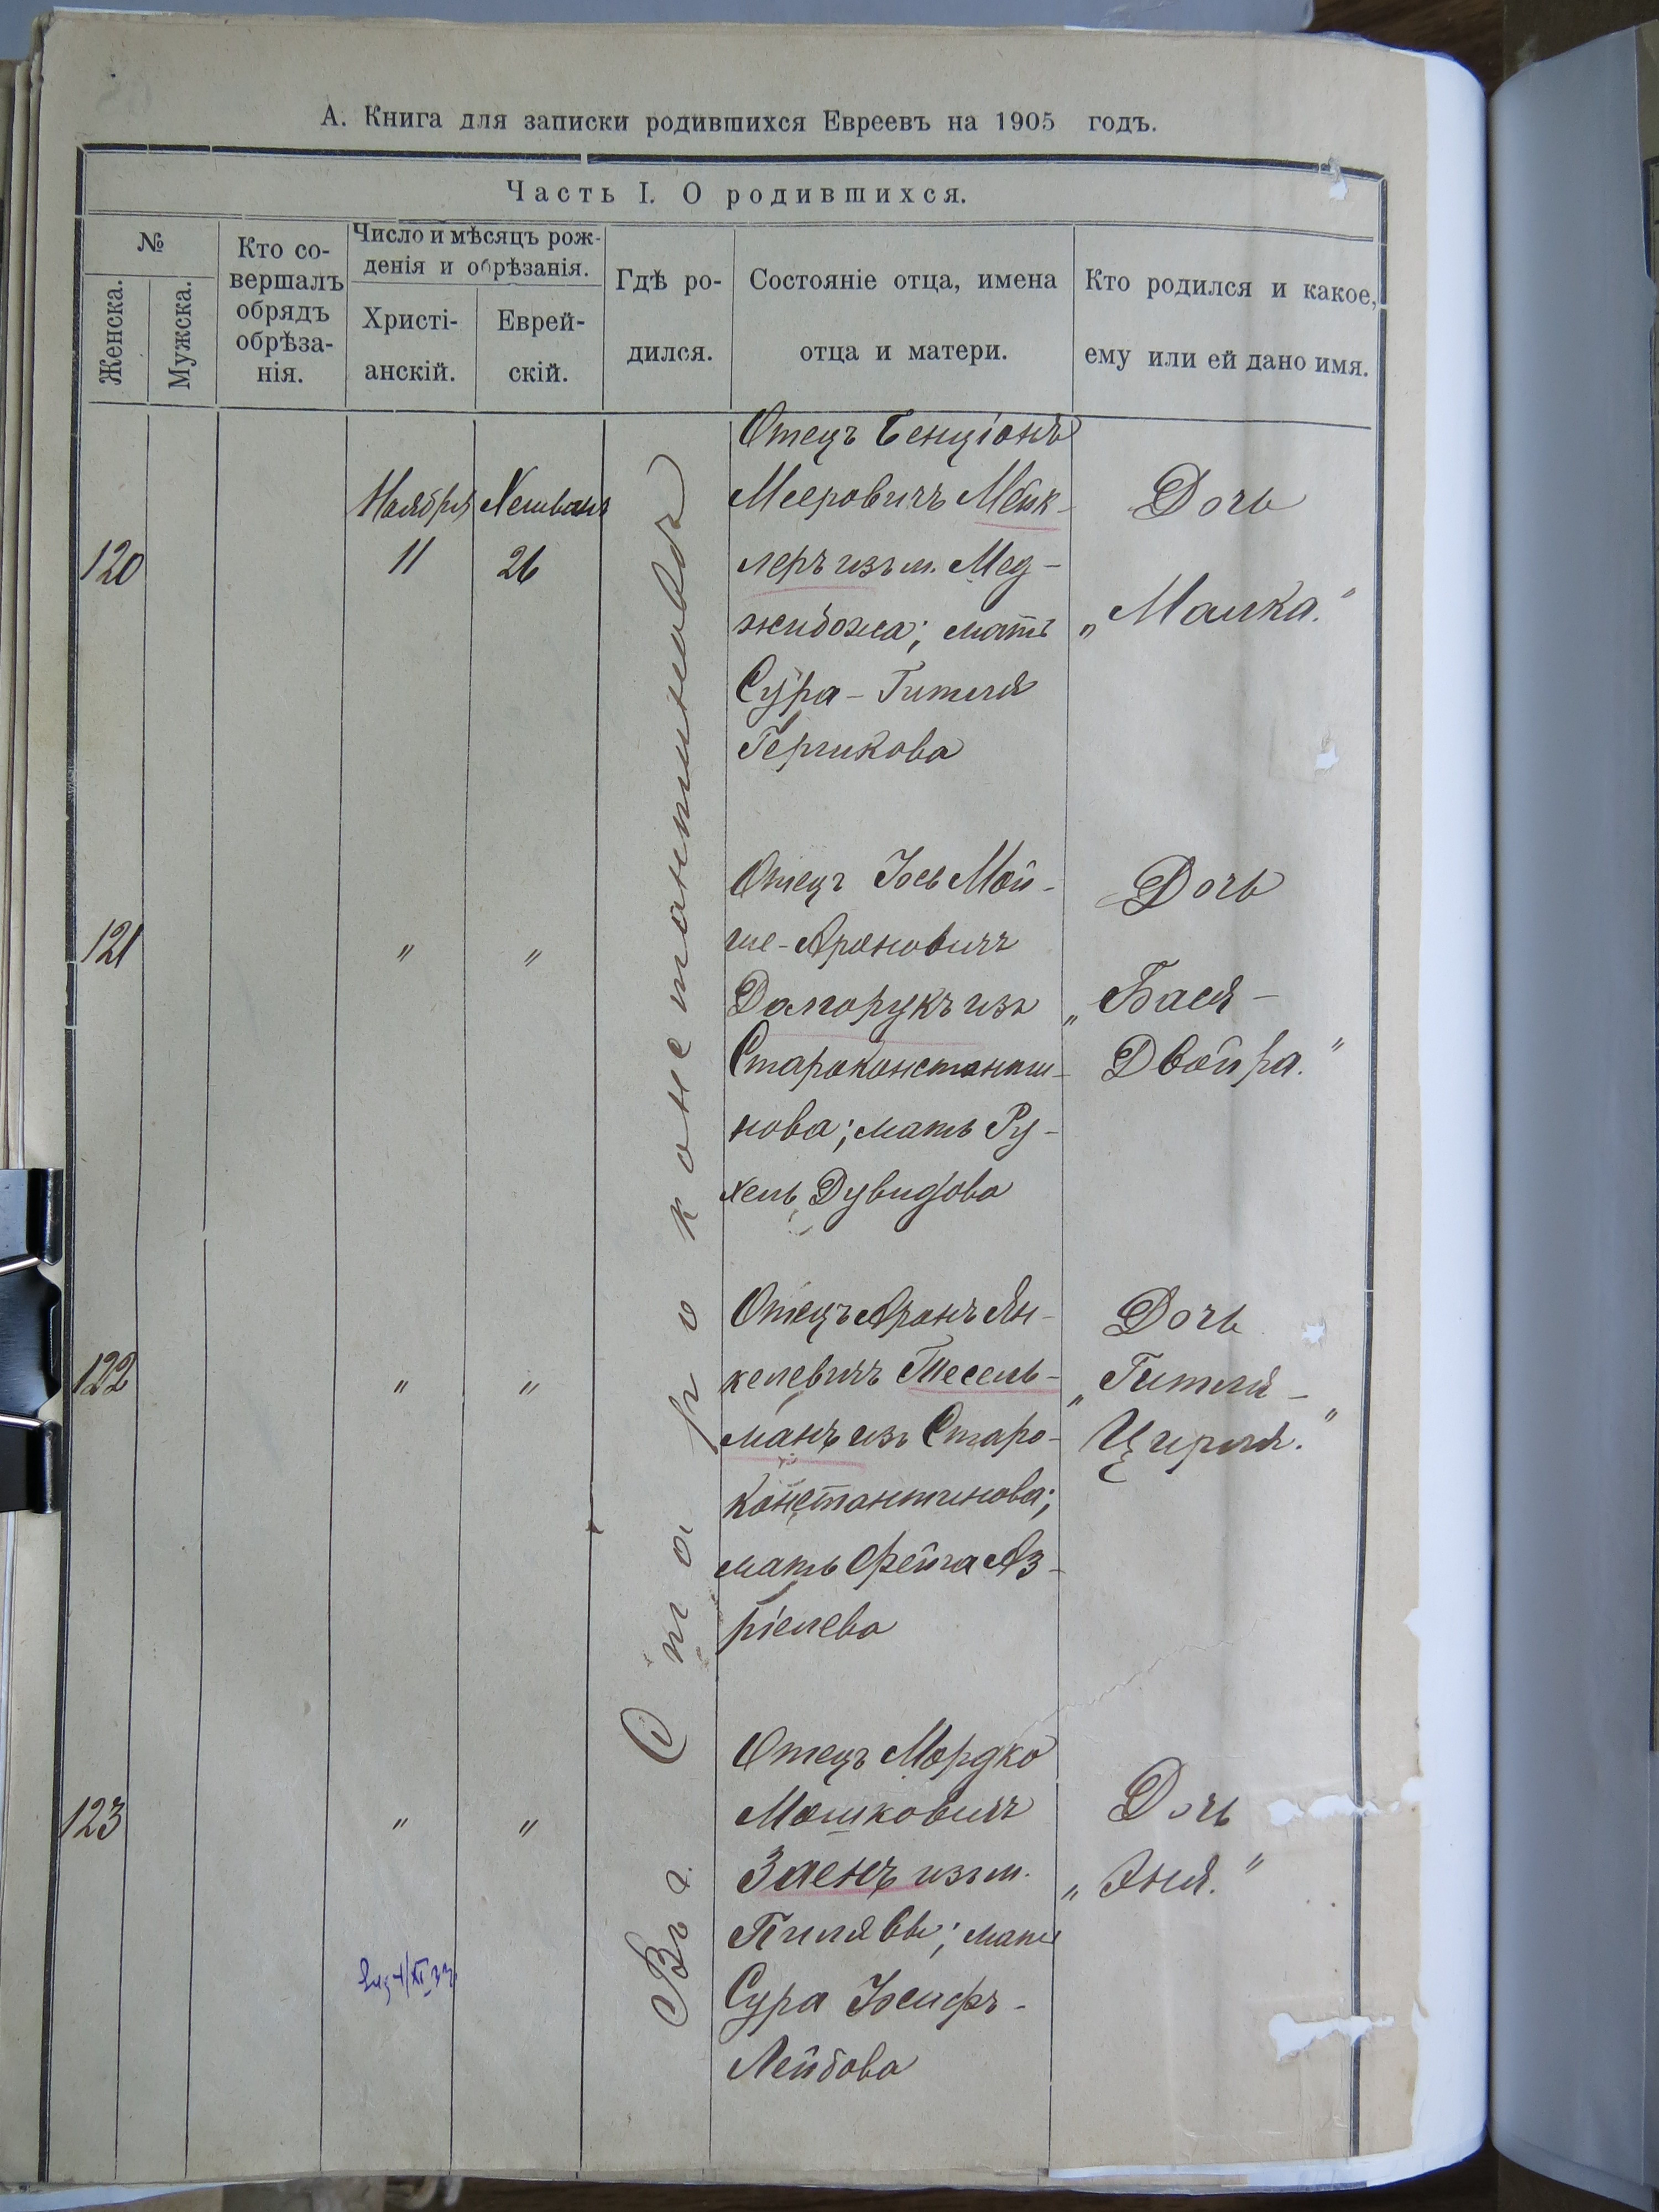 А. Книга для записки родившихся Евреевъ на 1905 годъ.
Часть I. О родившихся.
№
Женска.
Мужска.
Кто со-
вершалъ
обрядъ
обрѣза-
нія.
Число и мѣсяцъ рож-
денія и обрѣзанія.
Христі-
анскій.
Еврей-
скій.
Гдѣ ро-
дился.
Состояніе отца, имена
отца и матери.
Кто родился и какое,
ему или ей дано имя.
Въ г. Староконстантиновѣ
120
Ноября
11
Хешвана
26
Отецъ Бенціонъ
Мееровичъ Мекк-
леръ изъ м. Мед-
жибожа; мать
Сура-Гитля
Гершкова
Дочь
„Малка."
121
"
"
Отецъ Іось Мой-
ше-Ароновичъ
Долгорукъ изъ
Староконстанти-
нова; мать Ру-
хель Дувидова
Дочь
„Бася-
Двойра."
122
"
"
Отецъ Аронъ Ян-
келевичъ Тесель-
манъ изъ Старо-
константинова;
мать Фейга Аз-
ріелева
Дочь
„Гитля-
Цирля."
123
"
"
Отецъ Мордко
Мошковичъ
Заенъ изъ м.
Пилявы; мать
Сура Іосифъ-
Лейбова
Дочь
„Эня."